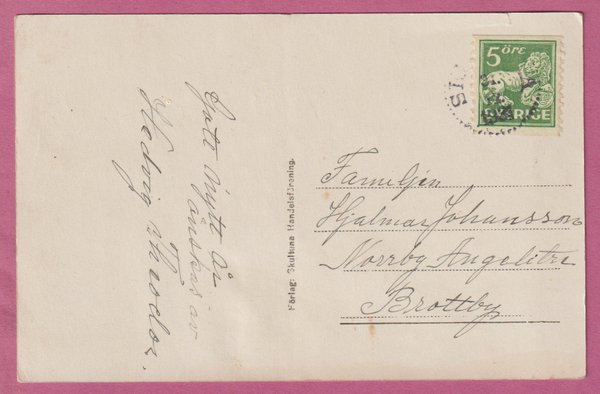 Gott Nytt År
önskar av
Hedvig Theodor.
Förlag: Skultuna Handelsförening.
5 ÖRE
SVERIGE
Familjen
Hjalmar Johansson
Norrby Angelitre
Brottby